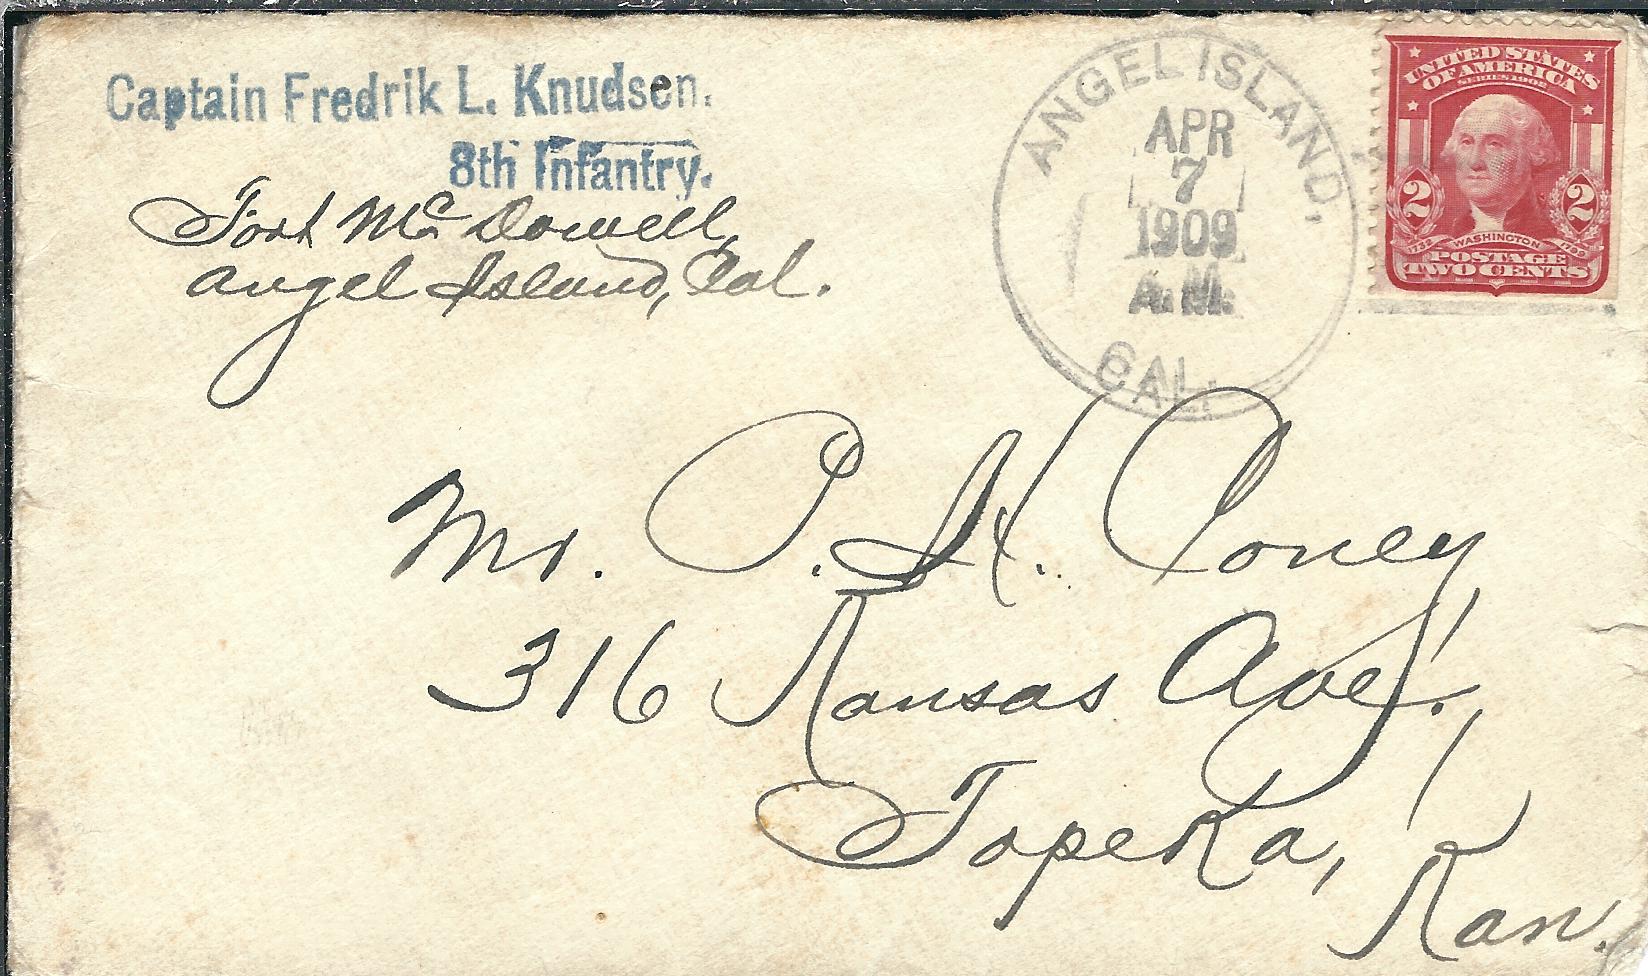 Captain Fredrik L. Knudsen.
8th Infantry.
Fort McDowell,
Angel Island, Cal.
ANGEL ISLAND,
APR
7
1909
A.M.
CAL.
UNITED STATES
OF AMERICA
SERIES 1902
2 2
1732 WASHINGTON 1799
POSTAGE
TWO CENTS
Mr. P. H. Coney,
316 Kansas Ave.,
Topeka,
Kan.